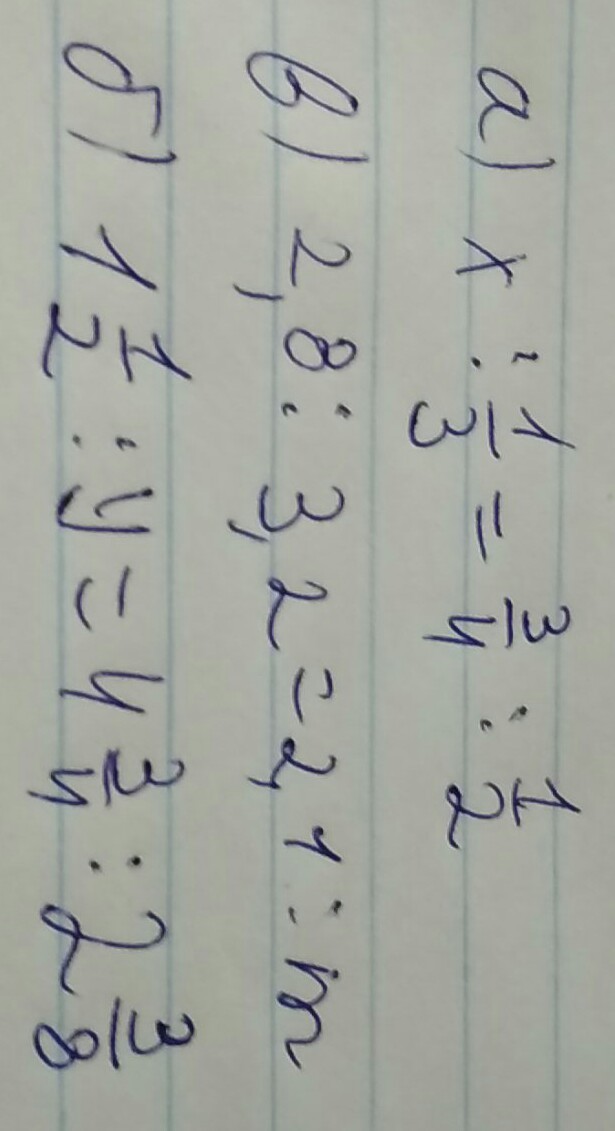 а) x : 1/3 = 3/4 : 1/2
в) 2,8 : 3,2 = 2,1 : m
б) 1 1/2 : y = 4 3/4 : 2 3/8